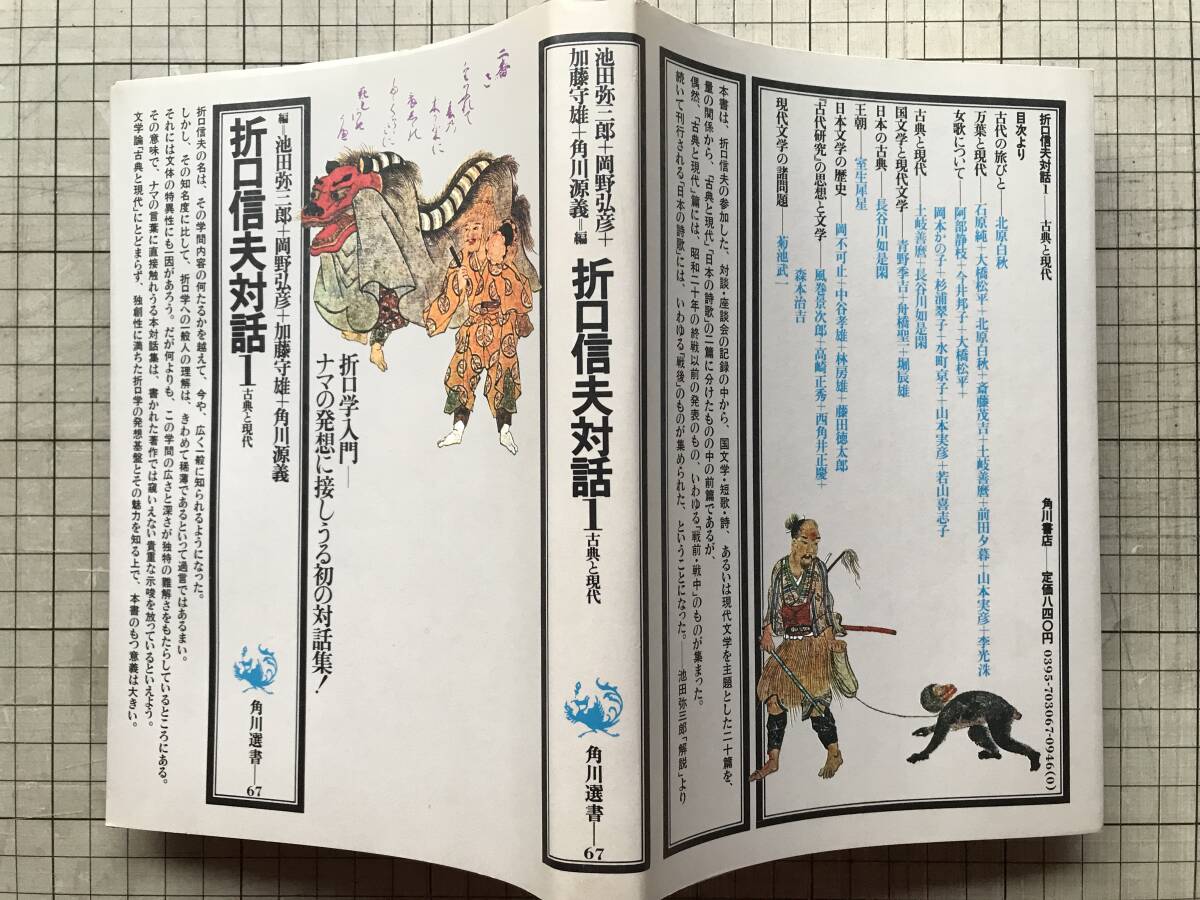 折口信夫対話1　古典と現代
目次より
古代の旅びと――北原白秋
万葉と現代――石原純+大橋松平+北原白秋+斎藤茂吉+土岐善麿+前田夕暮+山本実彦+李光洙
女歌について――阿部静枝+今井邦子+大橋松平+
岡本かの子+杉浦翠子+水町京子+山本実彦+若山喜志子
古典と現代――土岐善麿+長谷川如是閑
国文学と現代文学――青野季吉+舟橋聖一+堀辰雄
日本の古典――長谷川如是閑
王朝――室生犀星
日本文学の歴史――岡不可止+中谷孝雄+林房雄+藤田徳太郎
「古代研究」の思想と文学――風巻景次郎+高崎正秀+西角井正慶+
森本治吉
現代文学の諸問題――菊池武一
角川書店――定価八四〇円 0395-703067-0946(0)
本書は、折口信夫の参加した、対談・座談会の記録の中から、国文学・短歌・詩、あるいは現代文学を主題とした二十篇を、
量の関係から、「古典と現代」「日本の詩歌」の二篇に分けたものの中の前篇であるが、
偶然、「古典と現代」篇には、昭和二十年の終戦以前の発表のもの、いわゆる「戦前・戦中」のものが集まった。
続いて刊行される「日本の詩歌」には、いわゆる「戦後」のものが集められた、ということになった。――池田弥三郎「解説」より
池田弥三郎+岡野弘彦+
加藤守雄+角川源義=編
折口信夫対話1
古典と現代
角川選書――67
折口学入門――
ナマの発想に接しうる初の対話集!
編=池田弥三郎+岡野弘彦+加藤守雄+角川源義
折口信夫対話1
古典と現代
角川選書――67
折口信夫の名は、その学問内容の何たるかを越えて、今や、広く一般に知られるようになった。
しかし、その知名度に比して、折口学への一般人の理解は、きわめて稀薄であるといって過言ではあるまい。
それには文体の特異性にも一因があろう。だが何よりも、この学問の広さと深さが独特の難解さをもたらしているところにある。
その意味で、ナマの言葉に直接触れうる本対話集は、書かれた著作では窺いえない貴重な示唆を放っているといえよう。
文学論「古典と現代」にとどまらず、独創性に満ちた折口学の発想基盤とその魅力を知る上で、本書のもつ意義は大きい。